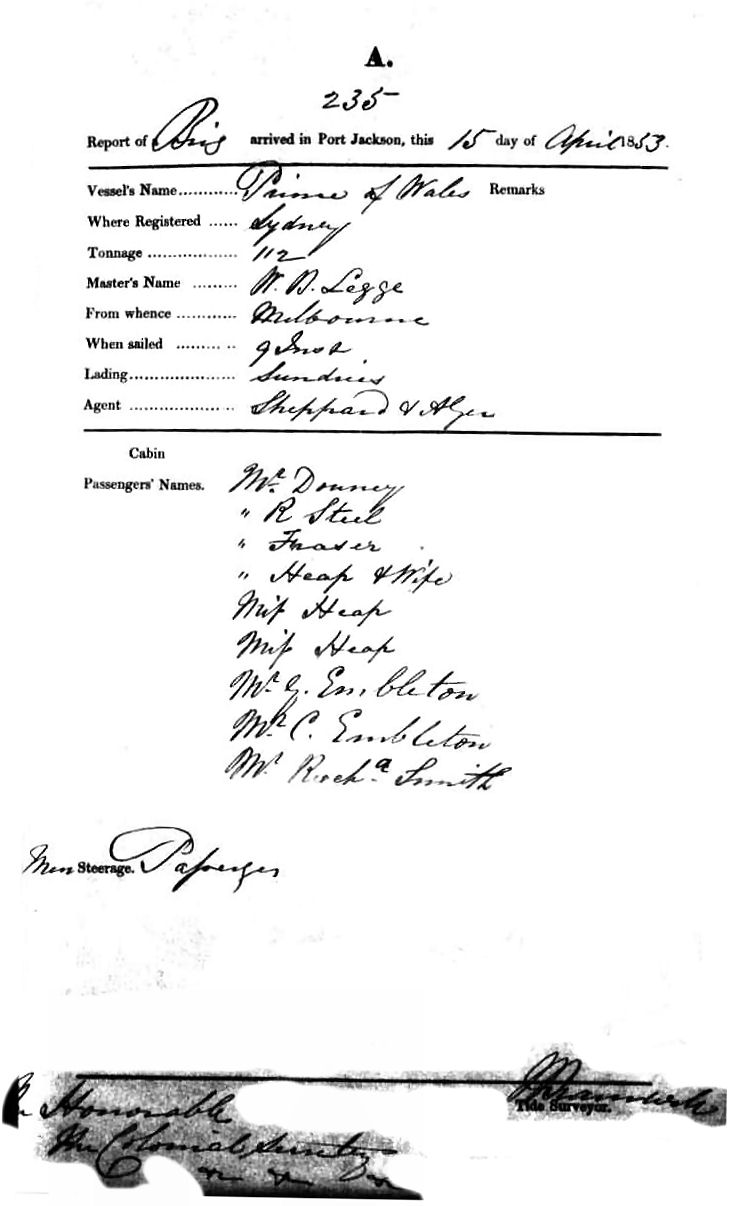 A.
235
Report of Brig arrived in Port Jackson, this 15 day of April 1853.
Vessel's Name............ Prince of Wales Remarks
Where Registered ...... Sydney
Tonnage .................. 112
Master's Name ......... W. B. Legge
From whence ............ Melbourne
When sailed ......... .. 9 Inst
Lading..................... Sundries
Agent ..................... Sheppard & Alger
Cabin
Passengers' Names. Mr. Downey
" R Steel
" Fraser
" Heap & Wife
Miss Heap
Miss Heap
Mr. G. Embleton
Mr. C. Embleton
Mr. Smith
Steerage. Passenger
Honorable
Tide Surveyor.
The Colonial Secretary